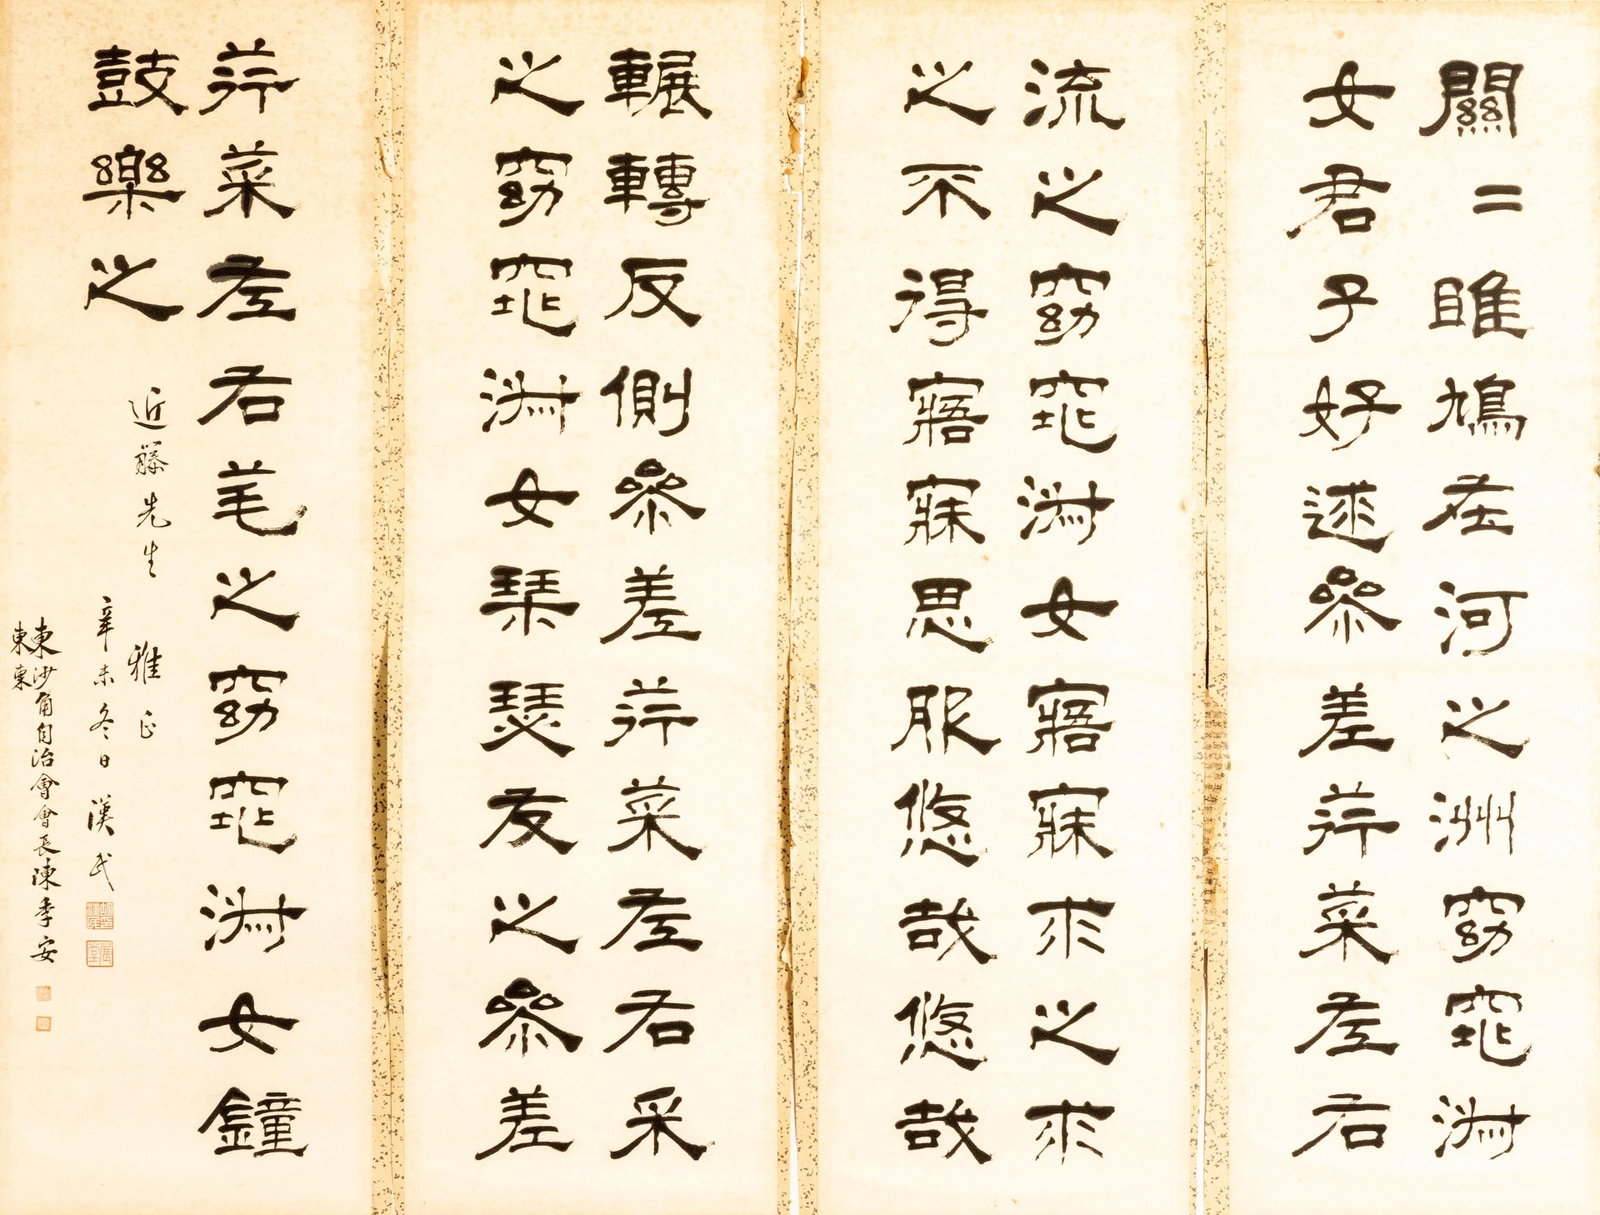 關二雎鳩在河之洲窈窕淑
女君子好逑參差荇菜左右
流之窈窕淑女寤寐求之求
之不得寤寐思服悠哉悠哉
輾轉反側參差荇菜左右采
之窈窕淑女琴瑟友之參差
荇菜左右芼之窈窕淑女鐘
鼓樂之
近藤先生 雅正
辛未冬日 漢民
東沙角自治會會長陳季安
東東